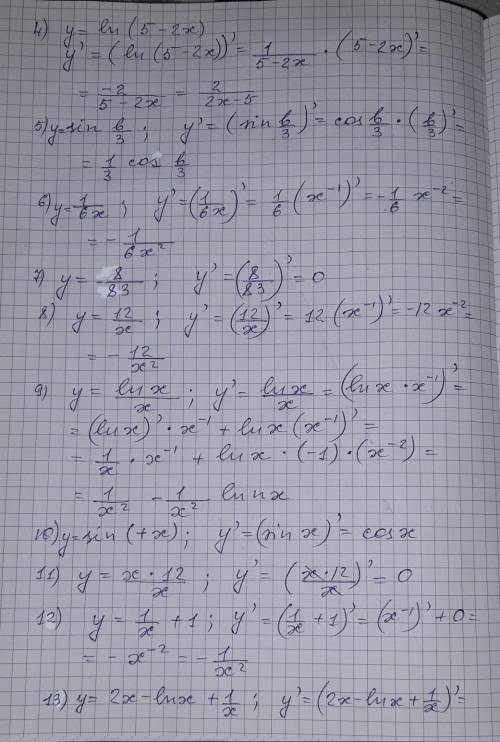 4) y = ln (5-2x)
y' = (ln (5-2x))' = 1/(5-2x) · (5-2x)' =
= -2/(5-2x) = 2/(2x-5)
5) y=sin в/3 ; y' = (sin в/3)' = cos в/3 · (в/3)' =
= 1/3 cos в/3
6) y = 1/6x ; y' = (1/6x)' = 1/6 (x⁻¹)' = -1/6 x⁻² =
= - 1/6x²
7) y = 8/83 ; y' = (8/83)' = 0
8) y = 12/x ; y' = (12/x)' = 12 (x⁻¹)' = -12 x⁻² =
= - 12/x²
9) y = ln x/x ; y' = ln x/x = (ln x · x⁻¹)' =
= (ln x)' · x⁻¹ + ln x (x⁻¹)' =
= 1/x · x⁻¹ + ln x · (-1) · (x⁻²) =
= 1/x² - 1/x² ln nx
10) y=sin (+x) ; y' = (sin x)' = cos x
11) y = x·12/x ; y' = (x·12/x)' = 0
12) y = 1/x + 1 ; y' = (1/x + 1)' = (x⁻¹)' + 0 =
= - x⁻² = - 1/x²
13) y = 2x - ln x + 1/x ; y' = (2x - ln x + 1/x)' =